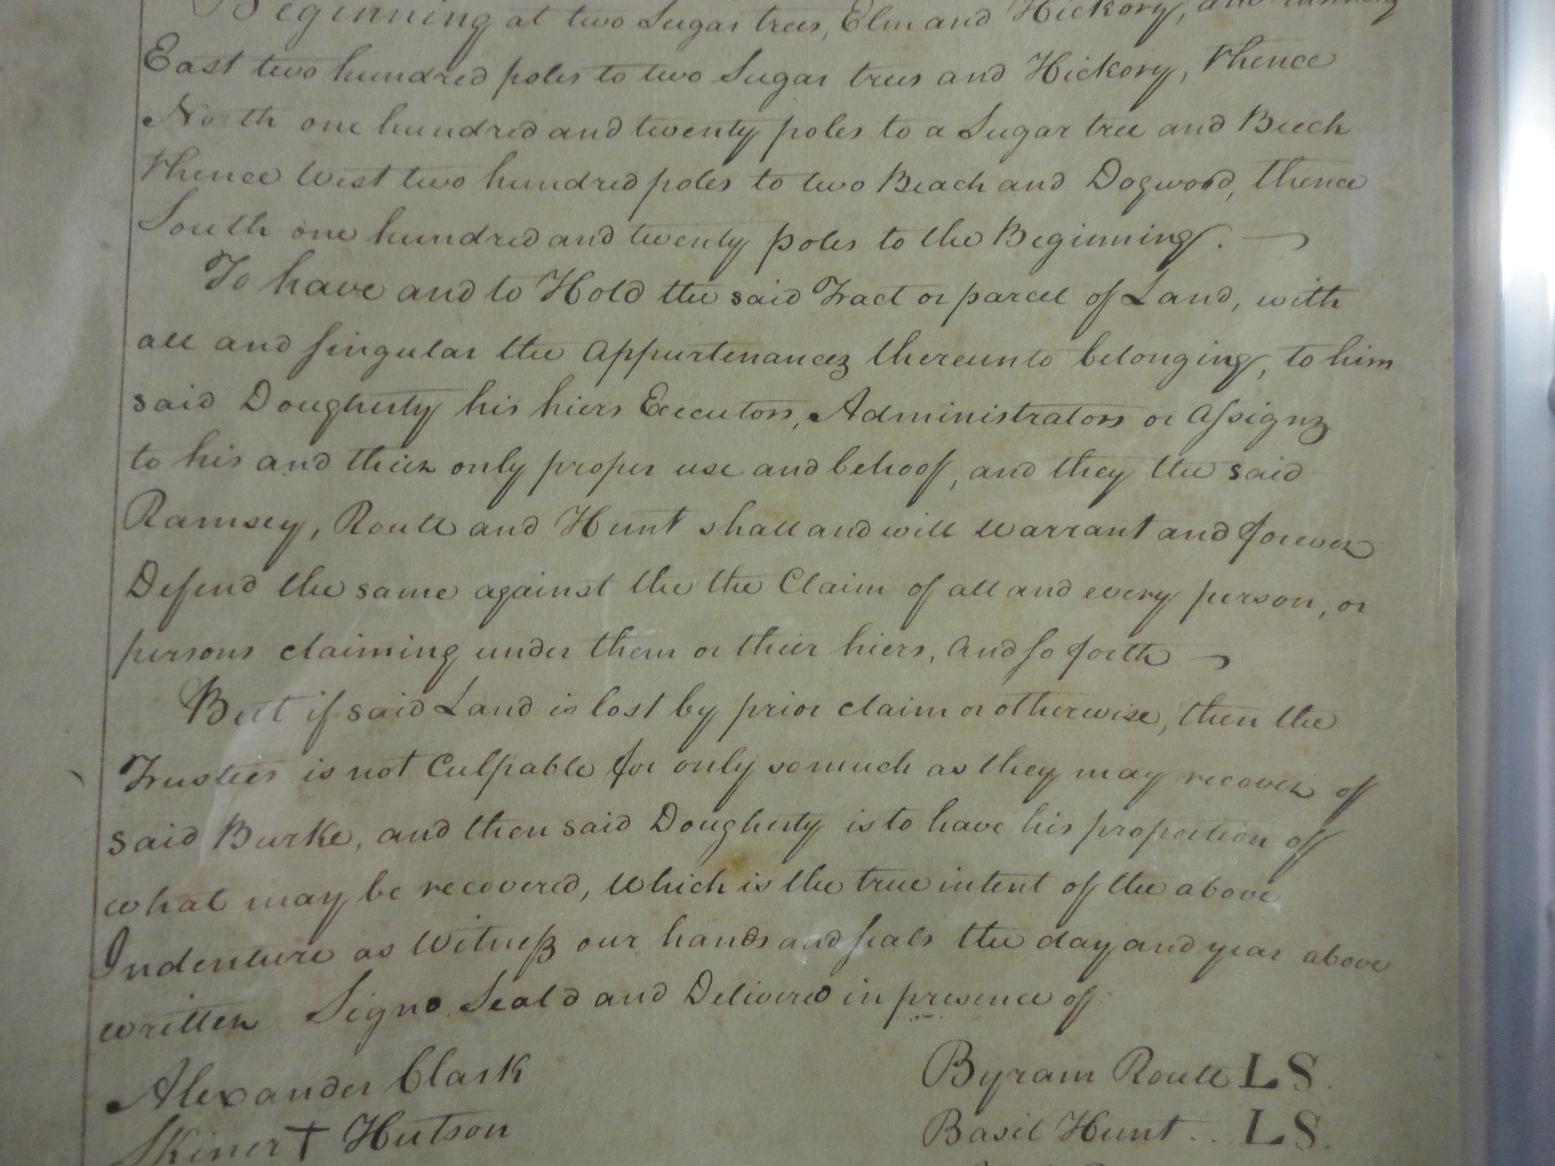 Beginning at two Sugar trees, Elm and Hickory, and running
East two hundred poles to two Sugar trees and Hickory, Thence
North one hundred and twenty poles to a Sugar tree and Beech
Thence West two hundred poles to two Beach and Dogwood, thence
South one hundred and twenty poles to the Beginning.
To have and to Hold the said Tract or parcel of Land, with
all and singular the Appurtenances thereunto belonging, to him
said Dougherty his hiers Executors, Administrators or Assigns
to his and thier only proper use and behoof, and they the said
Ramsey, Routt and Hunt shall and will Warrant and forever
Defend the same against the the Claim of all and every person, or
persons claiming under them or thier hiers, and so forth
But if said Land is lost by prior claim or otherwise, then the
Trustees is not Culpable for only so much as they may recover of
said Burke, and then said Dougherty is to have his proportion of
what may be recovered, Which is the true intent of the above
Indenture as Witness our hands and seals the day and year above
written Signd. Seald and Delivered in presence of
Alexander Clark Byram Routt LS.
Skiner + Hutson Basil Hunt .. LS.